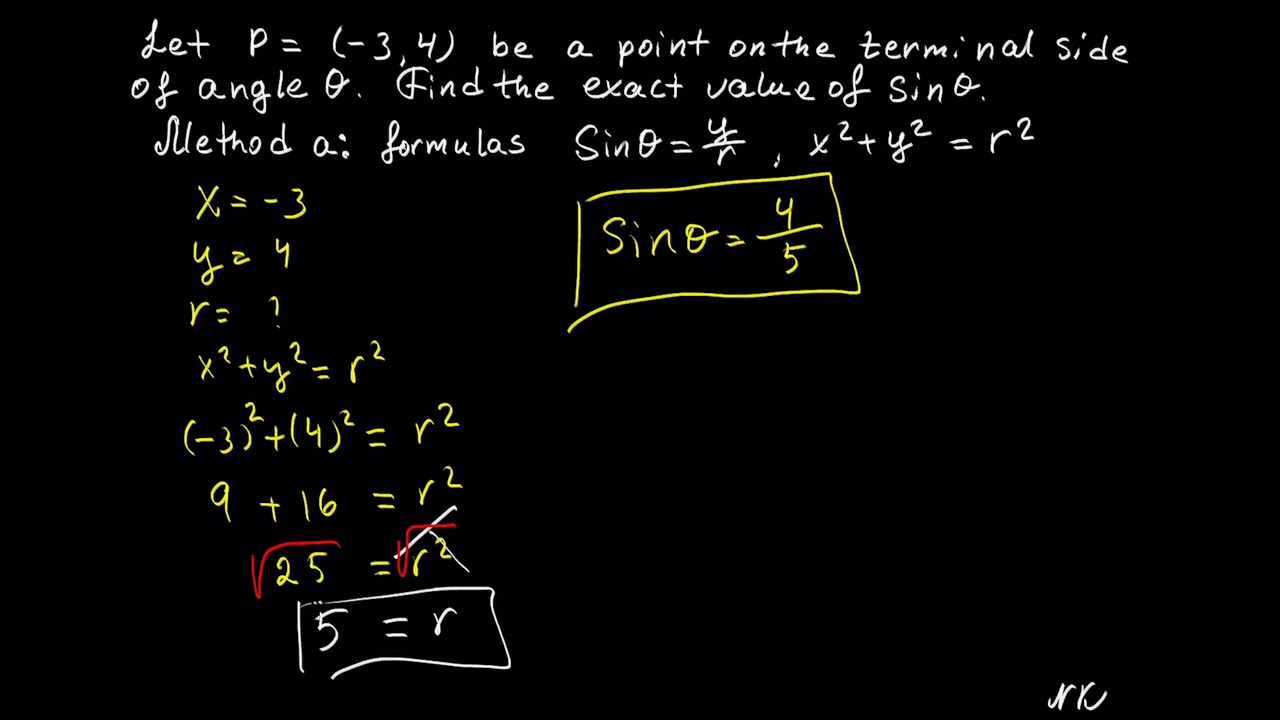 Let P = (-3, 4) be a point on the terminal side
of angle θ. Find the exact value of sinθ.
Method a: formulas Sinθ = y/r , x² + y² = r²
x = -3
y = 4
r = ?
x² + y² = r²
(-3)² + (4)² = r²
9 + 16 = r²
√25 = √r²
5 = r
Sinθ = 4/5
NK